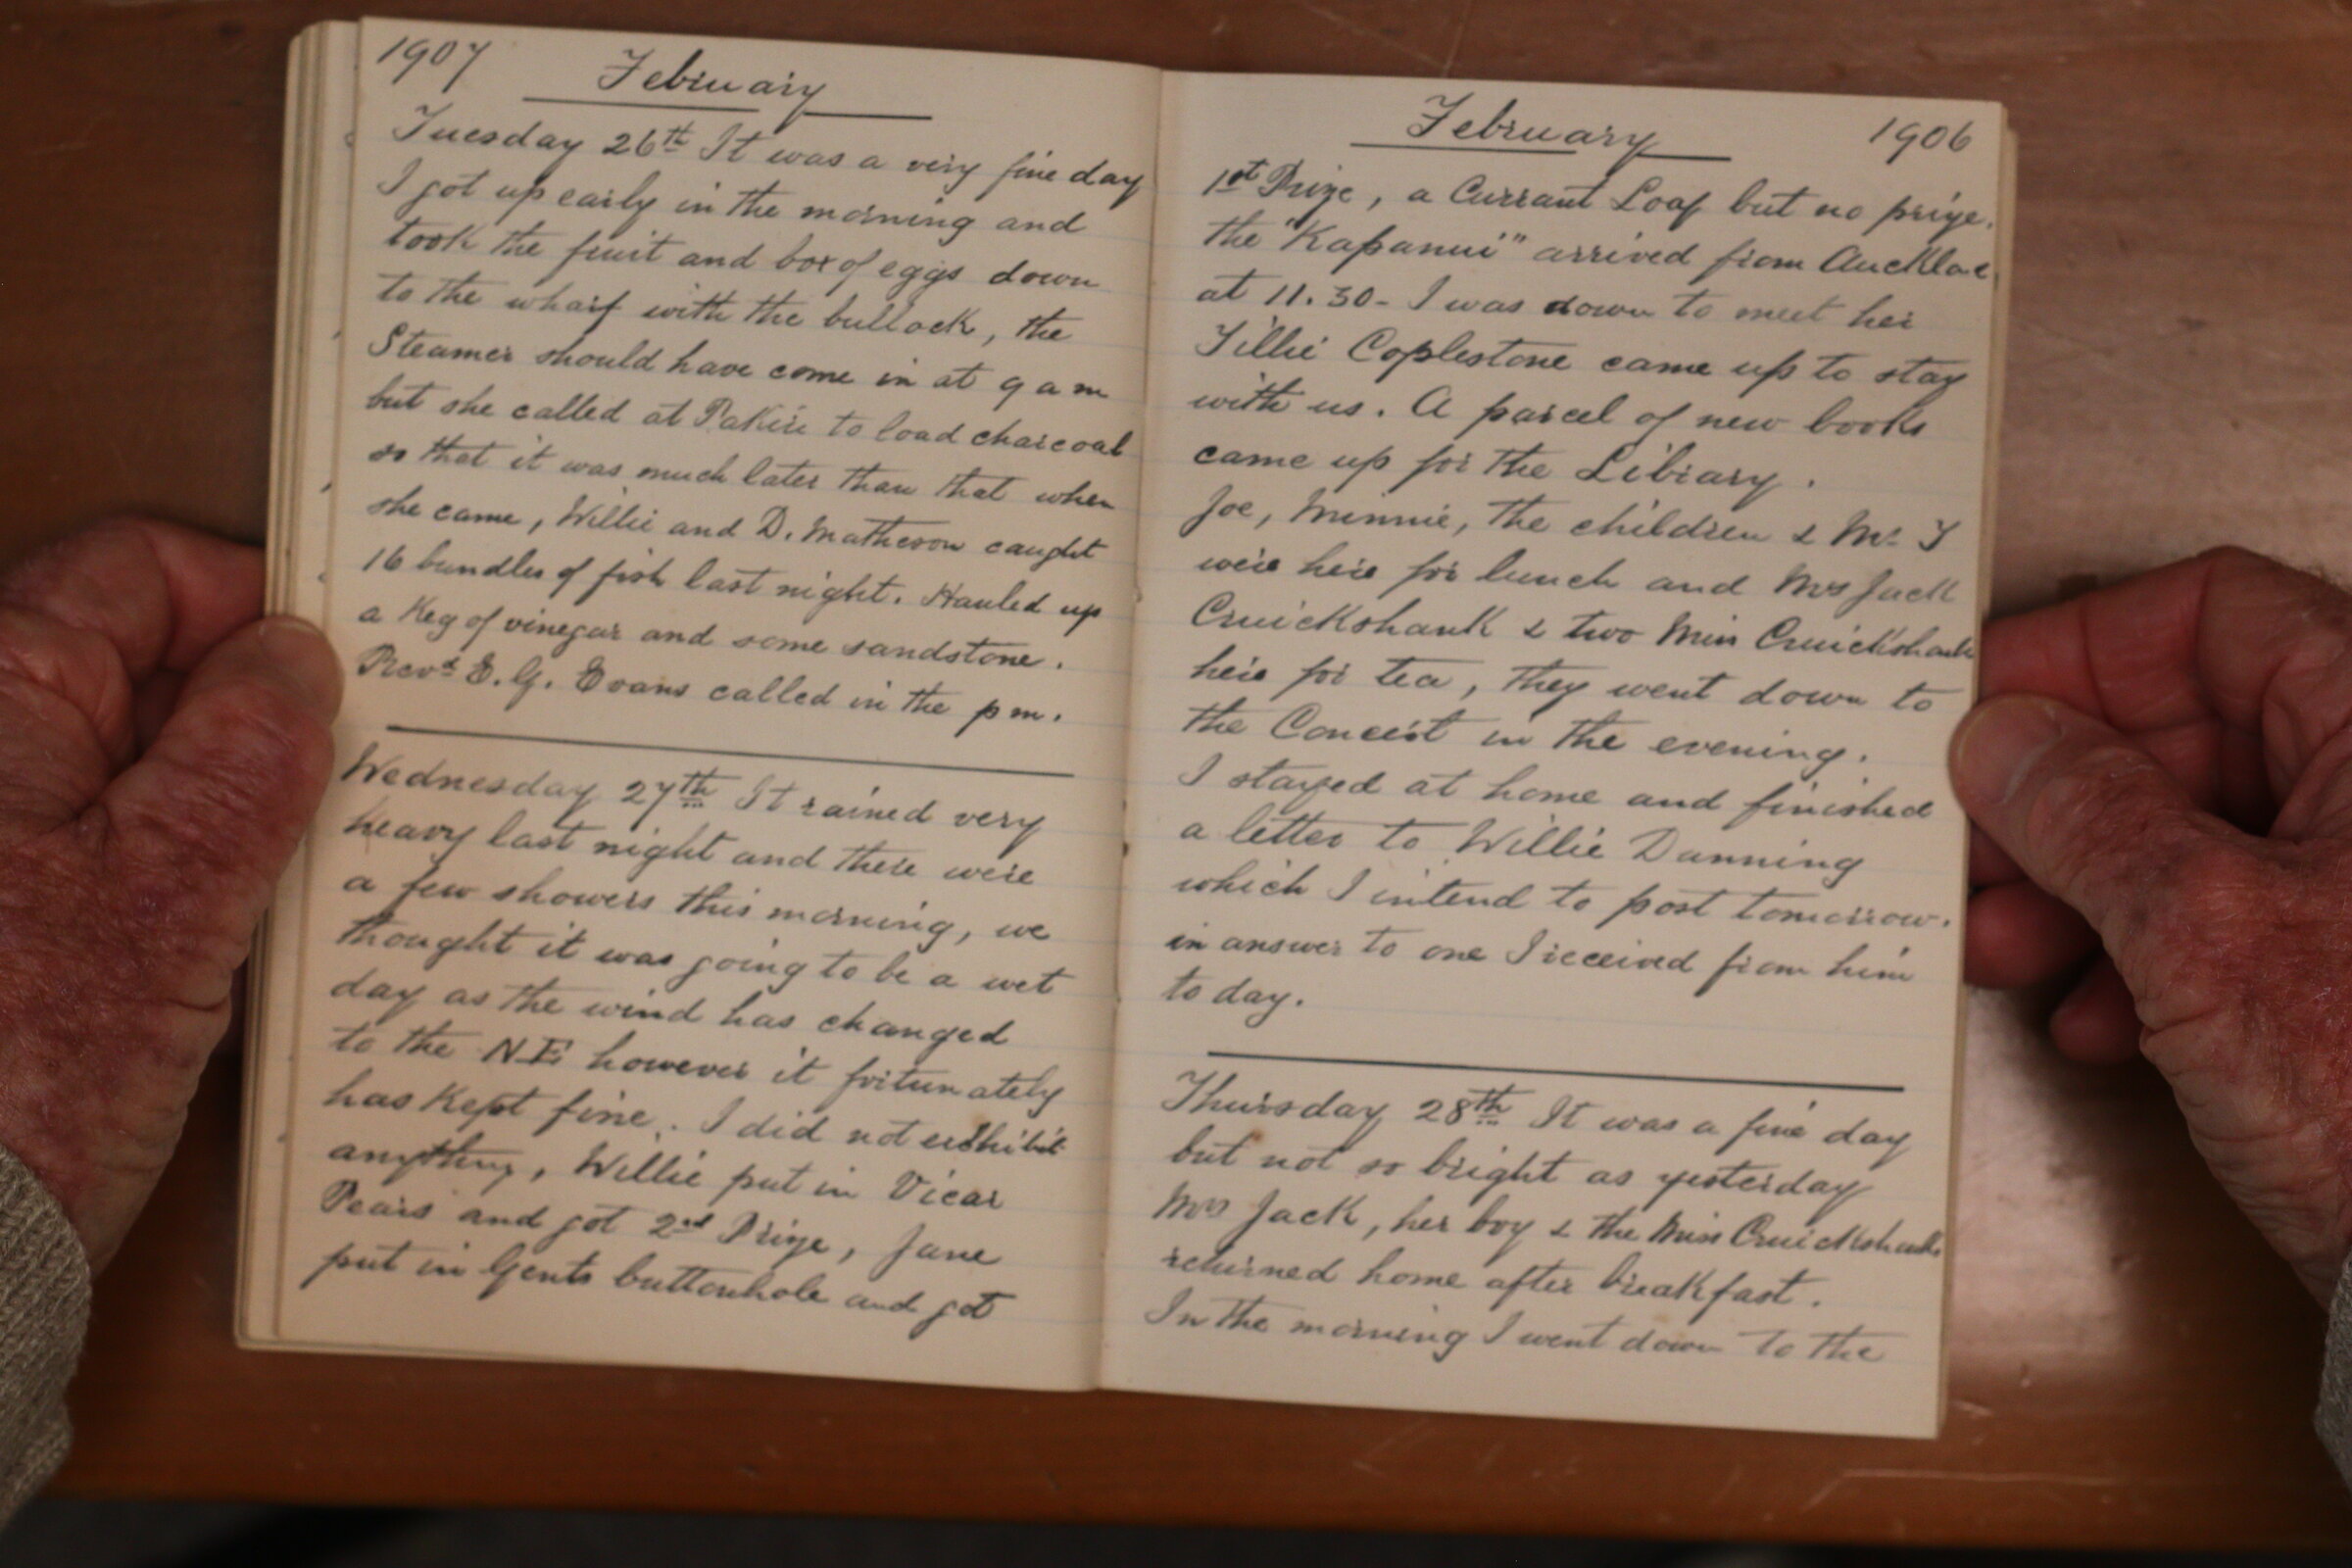 1907 February
Tuesday 26th It was a very fine day
I got up early in the morning and
took the fruit and box of eggs down
to the wharf with the bullock, the
Steamer should have come in at 9 a m
but she called at Pakiri to load charcoal
so that it was much later than that when
she came, Willie and D. Matheson caught
16 bundles of fish last night. Hauled up
a Keg of vinegar and some sandstone.
Revd E. G. Evans called in the p m.
Wednesday 27th It rained very
heavy last night and there were
a few showers this morning, we
thought it was going to be a wet
day as the wind has changed
to the N.E. however it fortunately
has Kept fine. I did not exhibit
anything, Willie put in Vicar
Pears and got 2nd Prize, Jane
put in Gents buttonhole and got
February 1906
1st Prize, a Currant Loaf but no prize.
the "Kapanui" arrived from
at 11.30 - I was down to meet her
Tillie Coplestone came up to stay
with us. A parcel of new books
came up for the Library.
Joe, Minnie, the children & Mr T
were here for lunch and Mrs Jack
Cruickshank & two Miss Cruickshank
here for tea, they went down to
the Concert in the evening.
I stayed at home and finished
a letter to Willie Dunning
which I intend to post tomorrow.
in answer to one I received from him
to day.
Thursday 28th It was a fine day
but not so bright as yesterday
Mrs Jack, her boy & the Miss Cruickshank
returned home after breakfast.
In the morning I went down to the